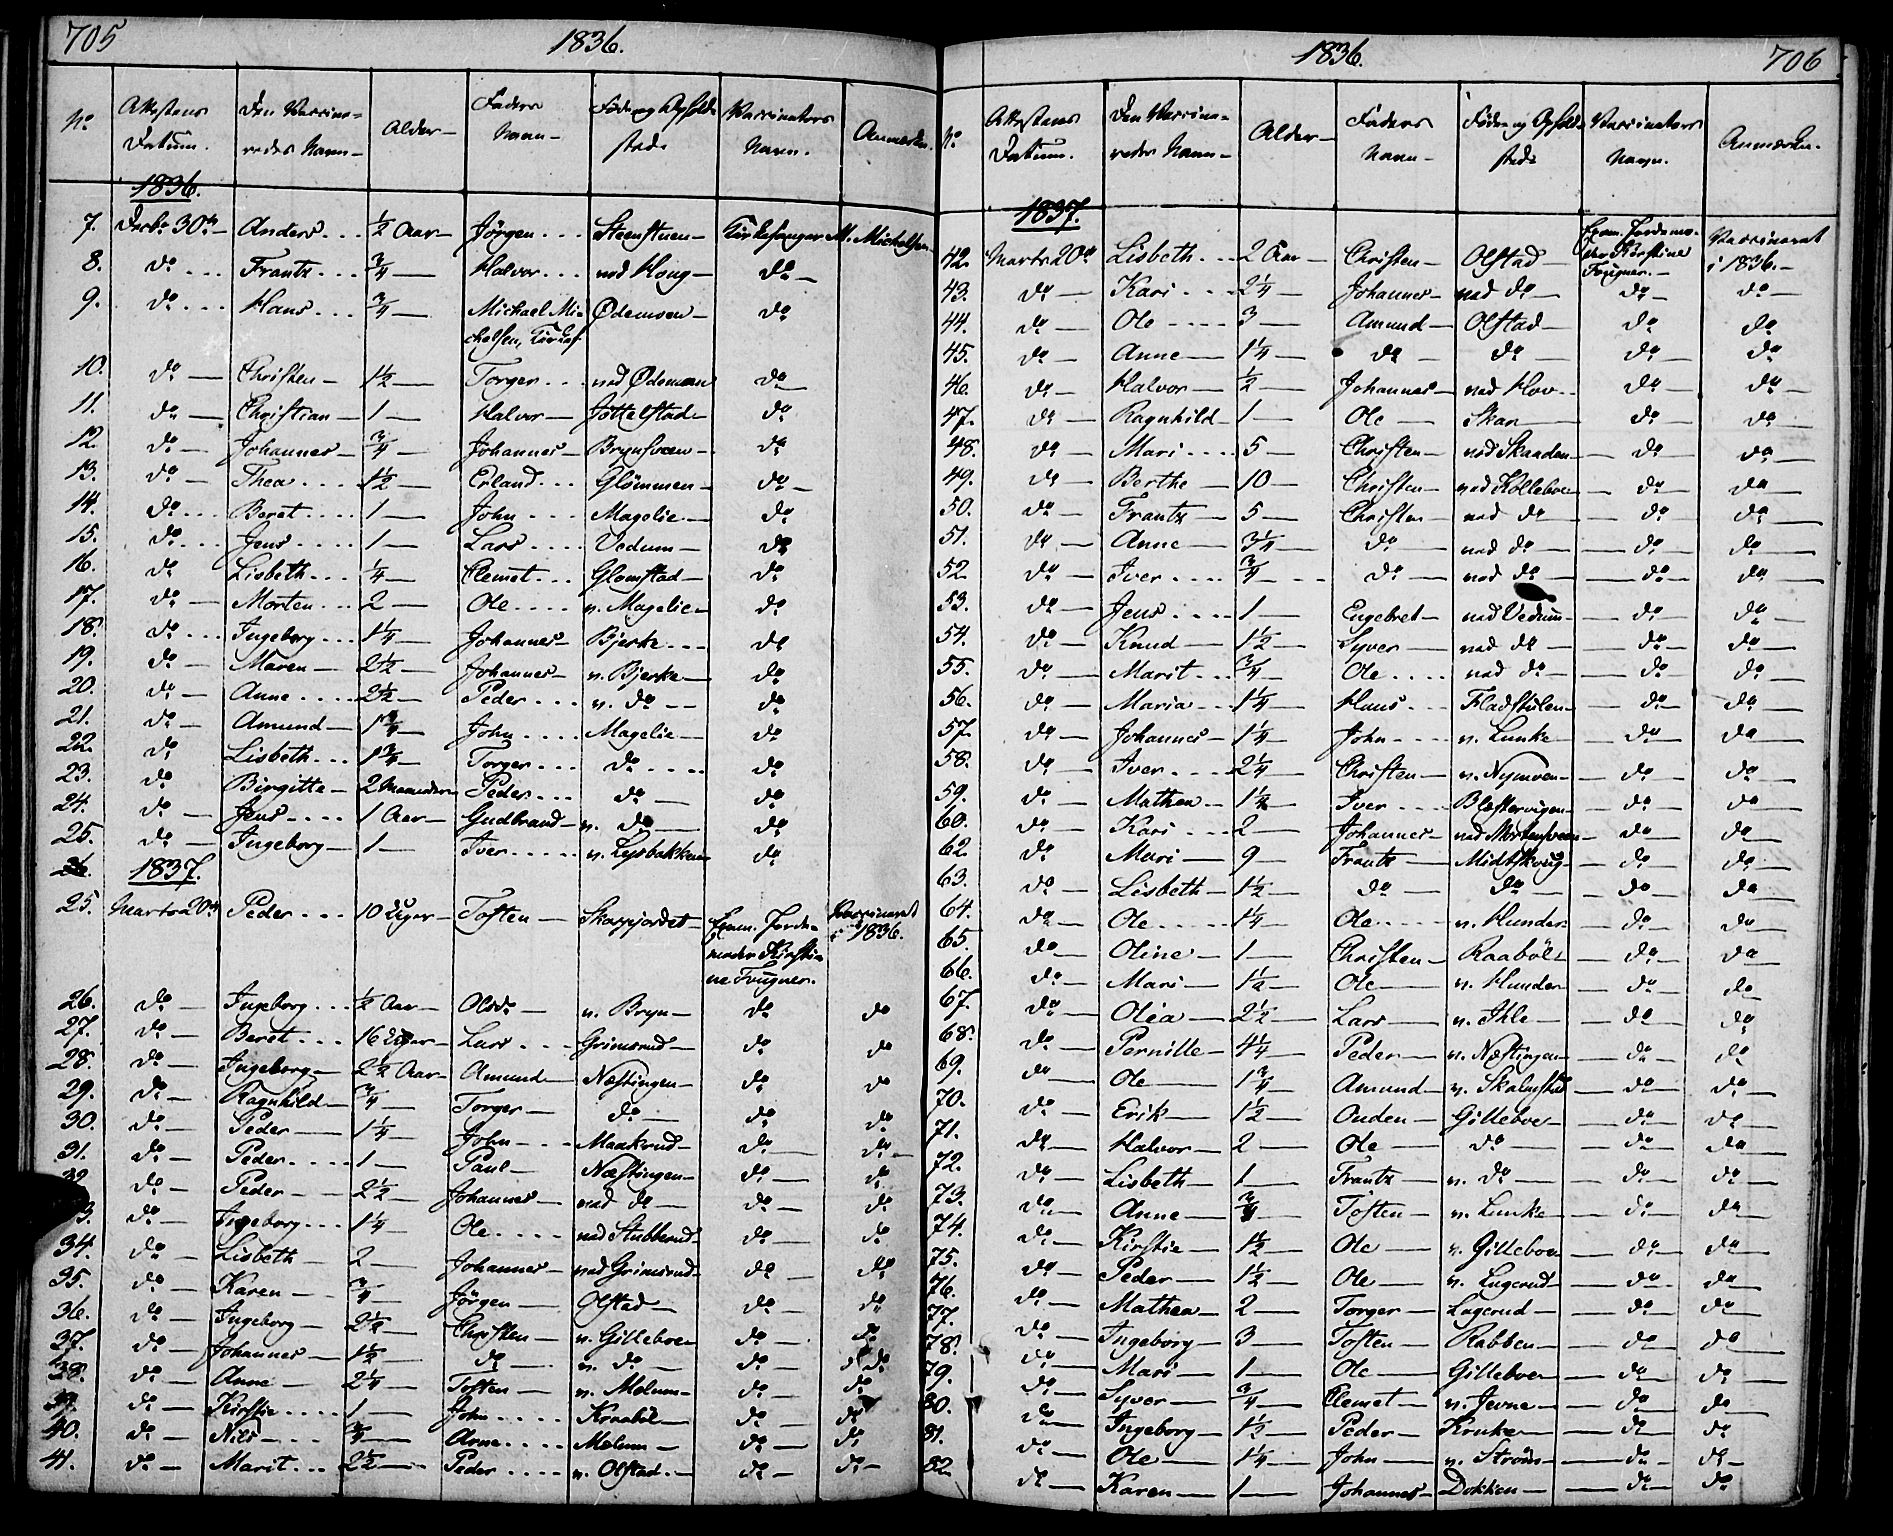 705 1836.
No Attestens Datum. Den Vaccine-redes Navn- Alder- Faders Navn- Føde og Opholds-sted. Vaccinateurs Navn. Anmærkn.
1836.
7. Decbr 30te Anders... ½ Aar- Jörgen... Steenstuen- Kirkesanger M. Michelsen
8. do... Frantz... ¾- Halvor... ved Houg- do-
9. do... Hans... ¾- Michael Mi- Ødemoen- do
chelsen, Kirkes.
10. do- Christen- 1½- Torger... ved Ødemoen do-
11. do- Christian- 1- Halvor- Jöttelstad- do
12. do- Johannes- ¾- Johannes- Brynsveen- do
13. do- Thea... 1½- Erland... Glömmen- do-
14. do... Beret... 1- John... Magelie- do
15. do... Jens... 1- Lars... Vedum- do
16. do Lisbeth... ¼- Clemet... Glomstad- do
17. do- Morten... 2- Ole.... v. Magelie- do
18. do... Ingeborg... 1¼- Johannes- Bjerke... do
19. do- Maren- 2½- Johannes- v. Bjerke- do
20. do- Anne.... 2½- Peder... v. do-- do
21. do- Amund- 1¾- John.... Magelie- do
22. do Lisbeth... 1¾- Torger... do.... do
23. do Birgitte- 2 Maaneder Peder... do- do
24. do- Jens.... 1 Aar- Gudbrand- v. do- do
25. do- Ingeborg- 1- Iver.... v. Lysbakken do
26. 1837.
25. Marts 20de Peder... 10 Uger- Tosten- Skarpjordet- Exam. Jorde- Vaccineret
moder Kirsti- i 1836.
ne Frugner.
26. do- Ingeborg... ½ Aar- v. Bryn- do do
27. do- Beret... 16 Uger- Lars... Grimsrud- do do
28. do- Ingeborg- 2½ Aar- Amund- Næstingen- do do
29. do- Ragnhild- ¾- Torger- do- do do
30. do- Peder- 1¼- John... Maakrud- do- do-
31. do- Peder.... 1- Paul- Næstingen- do- do
32. do- Peder- 2½- Johannes- ved do- do- do
33. do- Ingeborg... 1¼- Ole.... ved Stubberud- do- do
34. do- Lisbeth- 2- Johannes- ved Grimsrud- do- do
35. do- Karen- ¾- Jörgen- Olstad- do- do
36. do- Ingeborg- 2½- Christen- v. Gilleboe do- do
37. do- Johannes- 1½- do- v. do- do- do
38. do- Anne- 2¼- Tosten- v. Melum- do- do
39. do- Kirstie.... 1- John.... Kraaböl- do- do
40. do- Nils-. ¾- Arne.... Melum- do- do
41. do- Marit... 2½- Peder.... v. Olstad.- do- do-
1836. 706
No. Attestens Datum. Den Vaccine-redes Navn- Alder- Faders Navn- Føde og Opholds-sted Vaccinateurs Navn. Anmærkn.
1837.
42. Marts 20de Lisbeth... 2 Aar- Christen- Olstad- Exam. Jordemo-der Kirstine Frugner.- Vaccineret i 1836.-
43. do- Kari... 2¼- Johannes- ved do- do- do-
44. do- Ole.... 3- Amund- Olstad- do do
45. do- Anne- 1¼- do- do- do- do
46. do- Halvor- ½- Johannes- ved Hov.. do- do-
47. do- Ragnhild- 1- Ole- Skar- do do-
48. do- Mari.... 5- Christen- ved Skaaden- do- do-
49. do Berthe- 10- Christen- ved Kolleboe- do do-
50. do- Frantz- 5- Christen- ved do- do- do-
51. do- Anne- 3¼- do- ved do- do- do-
52. do- Iver.... ¾- do- ved do- do- do-
53. do- Jens.... 1- Engebret- ved Vedum- do do-
54. do- Knud- 1½- Syver- ved do- do- do-
55. do- Marit... ¾- Ole.... ved do- do- do-
56. do- Maria... 1¼- Hans... Fladstulen- do- do-
57. do- Johannes- 1¼- John.... v. Lunke- do- do-
58. do- Iver.... 2¼- Christen- v. Nymoen- do- do-
59. do- Mathea- 1½- Iver.... Blestervigen- do- do-
60. do- Kari.... 2- Johannes- ved Mortensveen- do- do-
62. do- Mari- 9- Frantz- Midtskoug- do- do-
63. do- Lisbeth- 1½- do- do- do- do-
64. do- Ole.... 1¼- Ole.... v. Hunder- do- do
65. do- Oline- 1- Christen- Raaböl- do- do-
66. do- Mari- 1½- Ole- v. Hunder do- do-
67. do- Olea- 2½- Lars- v. Ihle- do- do-
68. do- Pernille- 4¼- Peder- v. Næstingen- do- do-
69. do- Ole- 1¾- Amund- v. Skalmstad do- do-
70. do- Erik- 1½- Ouden- Gilleboe- do- do-
71. do- Halvor- 2- Ole- do- do- do-
72. do- Lisbeth- 1- Frantz- v. do- do- do-
73. do- Anne- ¾- Tosten- v. Lunke- do- do-
74. do- Kirstie- 1½- Ole- v. Gilleboe- do- do-
75. do- Peder- 1½- Ole- v. Lagerud- do- do-
76. do- Mathea- 2- Torger- Lagerud- do- do-
77. do- Ingeborg- 3- Tosten- Rabben- do- do-
78. do- Mari- 1- Ole- Gilleboe- do- do-
79. do- Syver- ¾- Clemet- v. Jevne- do- do-
80. do- Ingeborg- 1½- Peder- Kruke- do- do-
81. do- Ole- 1¼- John- v. Ström- do- do-
82. do- Karen- 1- Johannes- Dokken- do- do-